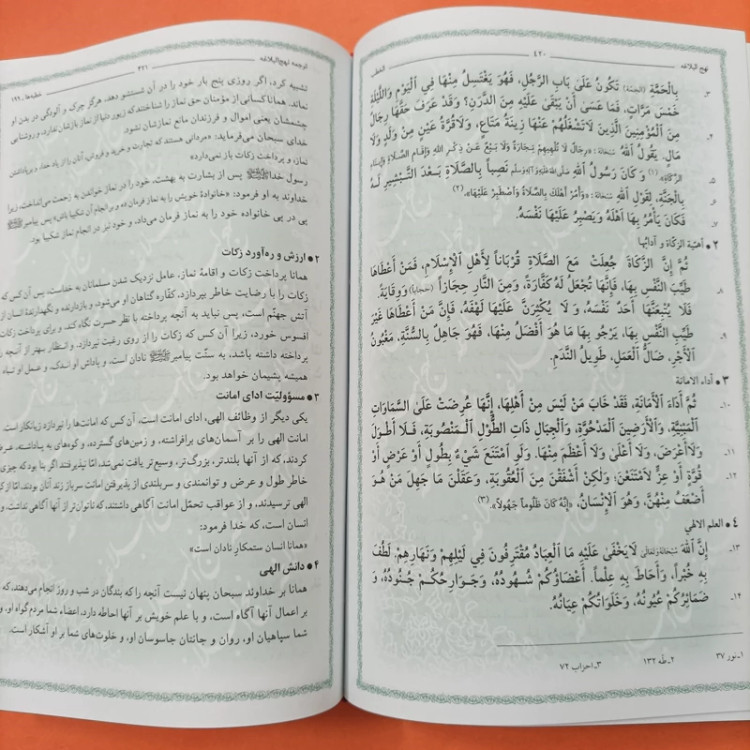 نهج البلاغه ۴۲۰ الخطب
۳ـ بِالْحَمَّةِ (الجَمَّة) تَكُونُ عَلَىٰ بَابِ الرَّجُلِ، فَهُوَ يَغْتَسِلُ مِنْهَا فِي الْيَوْمِ وَاللَّيْلَةِ
خَمْسَ مَرَّاتٍ، فَمَا عَسَىٰ أَنْ يَبْقَىٰ عَلَيْهِ مِنَ الدَّرَنِ؟ وَقَدْ عَرَفَ حَقَّهَا رِجَالٌ
مِنَ الْمُؤْمِنِينَ الَّذِينَ لَاتَشْغَلُهُمْ عَنْهَا زِينَةُ مَتَاعٍ، وَلَاقُرَّةُ عَيْنٍ مِنْ وَلَدٍ وَلَا
مَالٍ. يَقُولُ ٱللهُ سُبْحَانَهُ: «رِجَالٌ لَا تُلْهِيهِمْ تِجَارَةٌ وَلَا بَيْعٌ عَنْ ذِكْرِ اللهِ وَإِقَامِ الصَّلَاةِ وَإِيتَاءِ
الزَّكَاةِ»(۱) وَ كَانَ رَسُولُ ٱللهِ نَصِباً بِالصَّلَاةِ بَعْدَ التَّبْشِيرِ لَهُ
۵ـ بِالْجَنَّةِ، لِقَوْلِ ٱللهِ سُبْحَانَهُ: «وَأْمُرْ أَهْلَكَ بِالصَّلَاةِ وَاصْطَبِرْ عَلَيْهَا».(۲)
فَكَانَ يَأْمُرُ بِهَا أَهْلَهُ وَيَصْبِرُ عَلَيْهَا نَفْسَهُ.
۲ ● أهمّية الزكاة و آدابها
ثُمَّ إِنَّ الزَّكَاةَ جُعِلَتْ مَعَ الصَّلَاةِ قُرْبَاناً لِأَهْلِ الْإِسْلَامِ، فَمَنْ أَعْطَاهَا
طَيِّبَ النَّفْسِ بِهَا، فَإِنَّهَا تُجْعَلُ لَهُ كَفَّارَةً، وَمِنَ النَّارِ حِجَازاً (حجاباً) وَوِقَايَةً.
۸ـ فَلَا يُتْبِعَنَّهَا أَحَدٌ نَفْسَهُ، وَ لَا يُكْثِرَنَّ عَلَيْهَا لَهَفَهُ، فَإِنَّ مَنْ أَعْطَاهَا غَيْرَ
۹ـ طَيِّبِ النَّفْسِ بِهَا، يَرْجُو بِهَا مَا هُوَ أَفْضَلُ مِنْهَا، فَهُوَ جَاهِلٌ بِالسُّنَّةِ، مَغْبُونُ
الْأَجْرِ، ضَالُّ الْعَمَلِ، طَوِيلُ النَّدَمِ.
۳ ● أداء الامانة
۱۰ـ ثُمَّ أَدَاءَ الْأَمَانَةِ، فَقَدْ خَابَ مَنْ لَيْسَ مِنْ أَهْلِهَا، إِنَّهَا عُرِضَتْ عَلَى السَّمَاوَاتِ
الْمَبْنِيَّةِ، وَالْأَرَضِينَ الْمَدْحُوَّةِ، وَالْجِبَالِ ذَاتِ الطُّولِ الْمَنْصُوبَةِ، فَلَا أَطْوَلَ
۱۱ـ وَلَاأَعْرَضَ، وَلَا أَعْلَىٰ وَلَا أَعْظَمَ مِنْهَا. وَلَوِ امْتَنَعَ شَيْءٌ بِطُولٍ أَوْ عَرْضٍ أَوْ
۱۲ـ قُوَّةٍ أَوْ عِزٍّ لَامْتَنَعْنَ؛ وَلٰكِنْ أَشْفَقْنَ مِنَ الْعُقُوبَةِ، وَعَقَلْنَ مَا جَهِلَ مَنْ هُوَ
أَضْعَفُ مِنْهُنَّ، وَهُوَ الْإِنْسَانُ، «إِنَّهُ كَانَ ظَلُوماً جَهُولاً».(۳)
۴ ● العلم الالهي
۱۳ـ إِنَّ ٱللهَ سُبْحَانَهُ وَتَعَالَىٰ لَايَخْفَىٰ عَلَيْهِ مَا الْعِبَادُ مُقْتَرِفُونَ فِي لَيْلِهِمْ وَنَهَارِهِمْ، لَطُفَ
بِهِ خُبْراً، وَأَحَاطَ بِهِ عِلْماً. أَعْضَاؤُكُمْ شُهُودُهُ، وَجَوَارِحُكُمْ جُنُودُهُ، وَ
۱۴ـ ضَمَائِرُكُمْ عُيُونُهُ، وَخَلَوَاتُكُمْ عِيَانُهُ.
۱ـ نور ۳۷ ۲ـ طٰه ۱۳۲ ۳ـ احزاب ۷۲
ترجمه نهج‌البلاغه ۴۲۱ خطبه‌ها ـ ۱۹۹
تشبیه کرد، اگر روزی پنج بار خود را در آن شستشو دهد، هرگز چرک و آلودگی در بدن او
نماند. همانا کسانی از مؤمنان حق نماز را شناختند که زیور دنیا از نماز بازشان ندارد، و روشنایی
چشمشان یعنی اموال و فرزندان مانع نمازشان نشود.
خدای سبحان می‌فرماید: «مردانی هستند که تجارت و خرید و فروش، آنان را از یاد خدا، و برپاداشتن
نماز، و پرداخت زکات باز نمی‌دارد»
رسول خدا ﷺ پس از بشارت به بهشت، خود را در نماز خواندن به زحمت می‌انداخت، زیرا
خداوند به او فرمود: «خانوادهٔ خویش را به نماز فرمان ده و بر انجام آن شکیبا باش» پس پیامبر ﷺ
پی در پی خانواده خود را به نماز فرمان می‌داد، و خود نیز در انجام نماز شکیبا بود.
۲ ● ارزش و ره‌آورد زکات
همانا پرداخت زکات و اقامهٔ نماز، عامل نزدیک شدن مسلمانان به خداست، پس آن کس که
زکات را با رضایت خاطر بپردازد، کفّاره گناهان او می‌شود، و بازدارنده و نگهدارندهٔ انسان از
آتش جهنّم است، پس نباید به آنچه پرداخته با نظر حسرت نگاه کند، و برای پرداخت زکات
افسوس خورد، زیرا آن کس که زکات را از روی رغبت نپردازد، و انتظار بهتر از آنچه را
پرداخته داشته باشد، به سنّت پیامبر ﷺ نادان است، و پاداش او اندک، و عمل او تباه و
همیشه پشیمان خواهد بود.
۳ ● مسؤولیّت ادای امانت
یکی دیگر از وظائف الهی، ادای امانت است، آن کس که امانت‌ها را نپردازد زیانکار است.
امانت الهی را بر آسمان‌های برافراشته، و زمین‌های گسترده، و کوه‌های به پاداشته، عرضه
کردند، که از آنها بلندتر، بزرگ‌تر، وسیع‌تر یافت نمی‌شد، امّا نپذیرفتند اگر بنا بود که چیزی به
خاطر طول و عرض و توانمندی و سربلندی از پذیرفتن امانت سرباز زند آنان بودند، امّا از کیفر
الهی ترسیدند، و از عواقب تحمّل امانت آگاهی داشتند، که ناتوان‌تر از آنها آگاهی نداشت، و آن
انسان است، که خدا فرمود:
«همانا انسان ستمکارِ نادان است»
۴ ● دانش الهی
همانا بر خداوند سبحان پنهان نیست آنچه را که بندگان در شب و روز انجام می‌دهند، که
بر اعمال آنها آگاه است، و با علم خویش بر آنها احاطه دارد، اعضاء شما مردم گواه او، و
شما سپاهیان او، روان و جانتان جاسوسان او، و خلوت‌های شما بر او آشکار است.